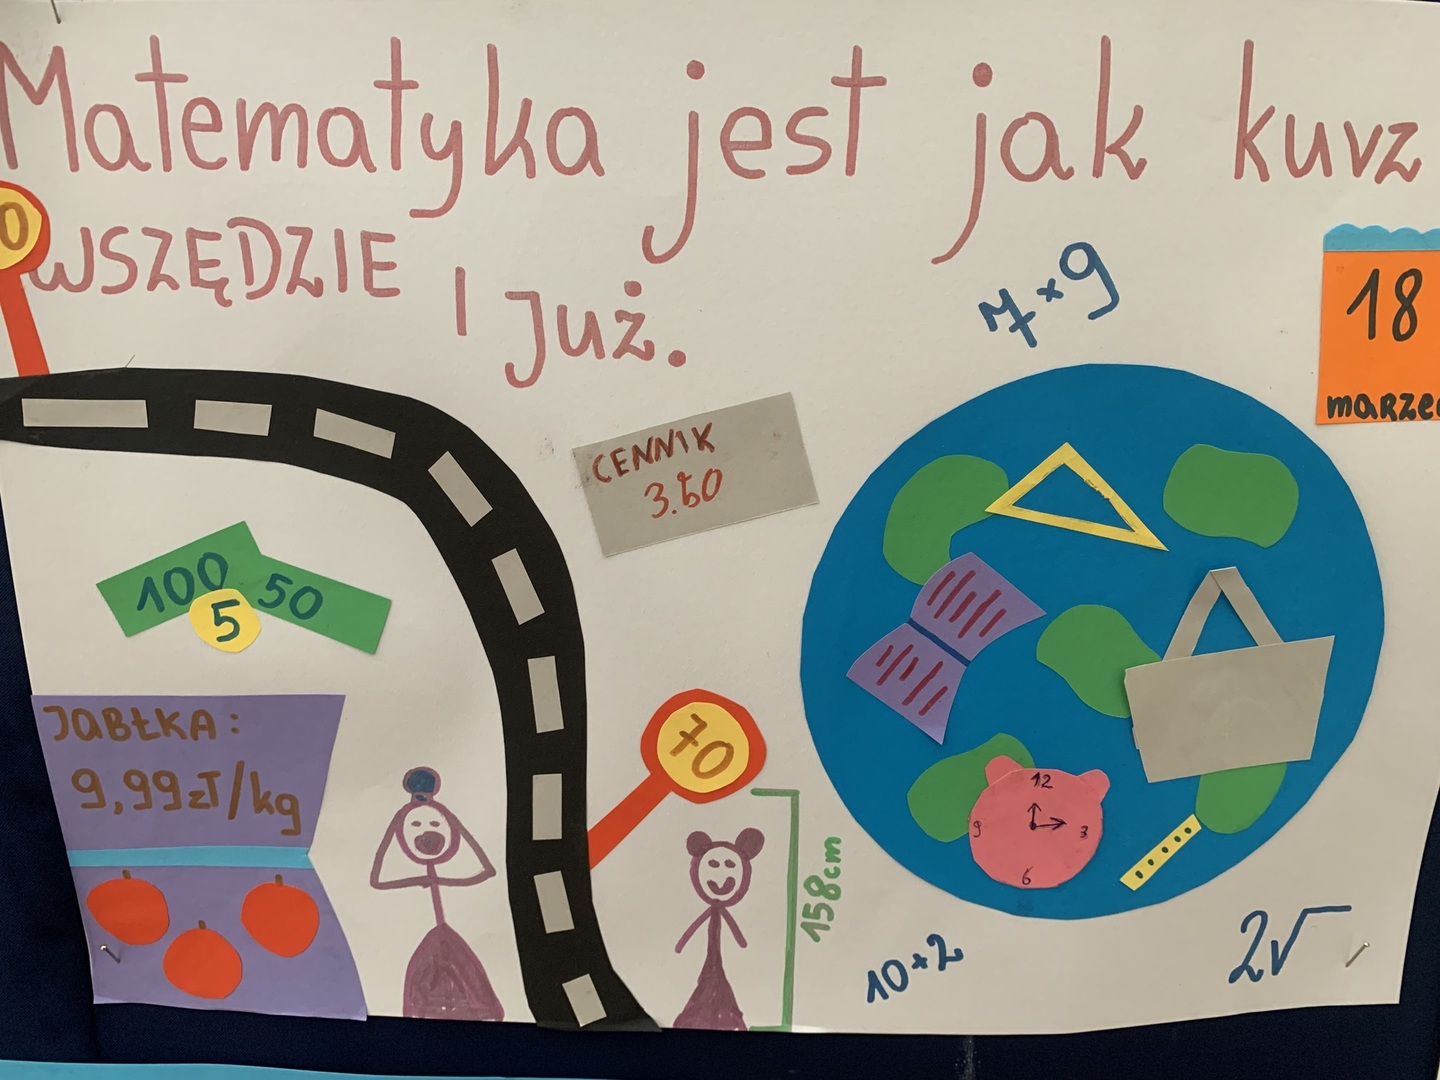 Matematyka jest jak kurz
WSZĘDZIE I Już.
0
7 × 9
18
marzec
CENNIK
3.50
100 50
5
JABŁKA:
9,99zł/kg
70
158cm
12
9 3
6
10+2
2√